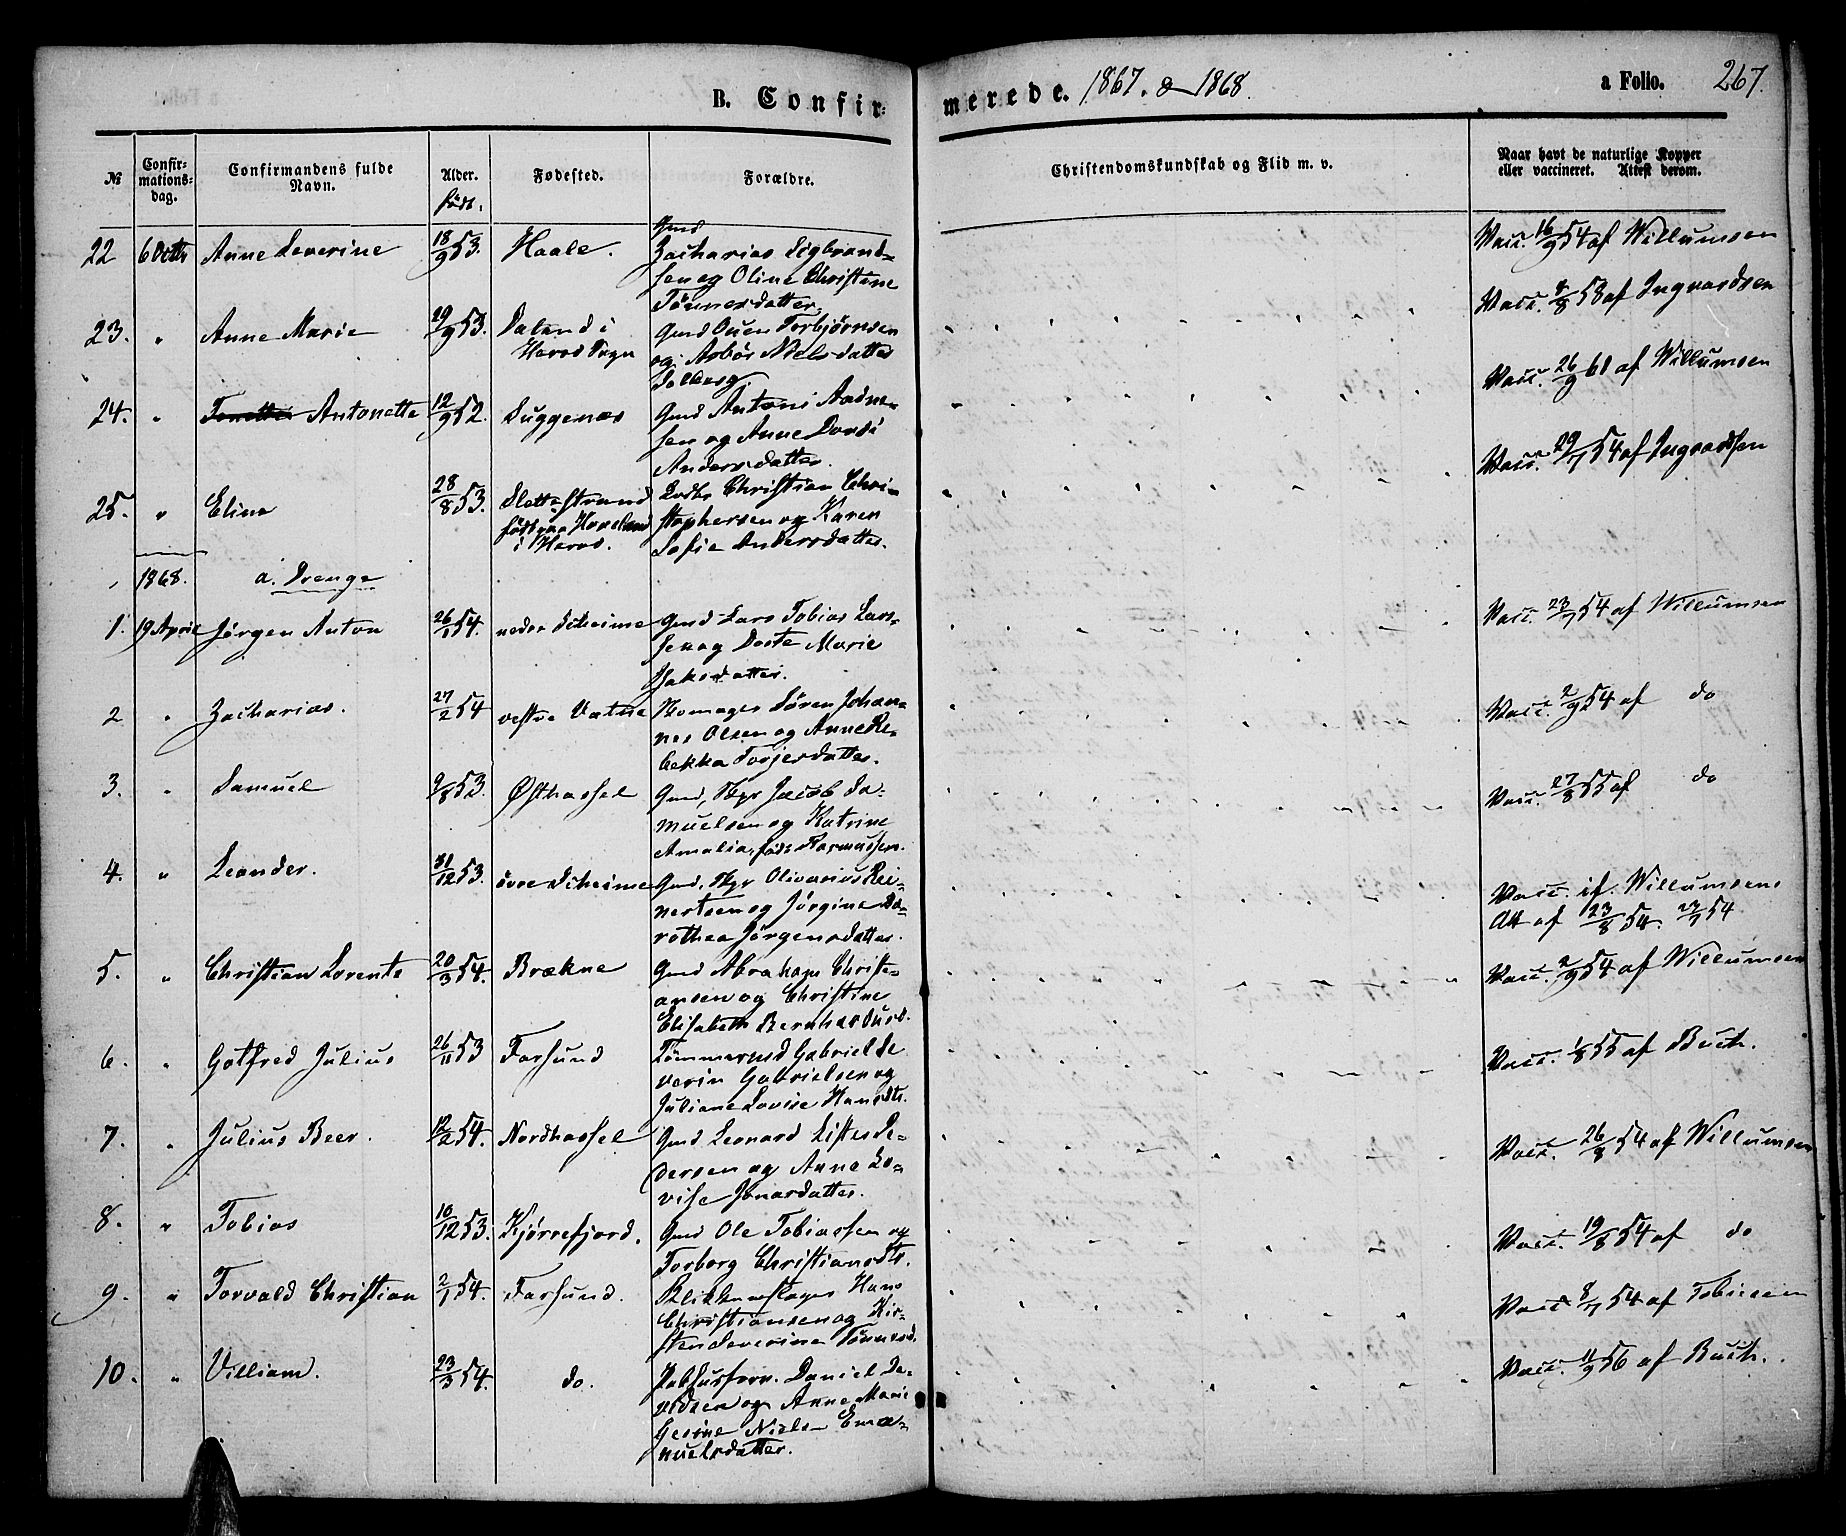 B. Confir= merede. 1867. & 1868. a Folio. 267.
№ Confir=mations=dag. Confirmandens fulde Navn. Alder. født. Fødested. Forældre. Christendomskundskab og Flid m. v. Naar havt de naturlige Kopper eller vaccineret. Attest derom.
22 6 Octb Anne Severine 18/9 53. Haale. Gmd Zacharias Sigbrand=
sen og Oline Christine
Tönnesdatter Vacc. 16/9 54 af Willumsen
23. " Anne Marie 29/9 53. Daland i Gmd Ouen Torbjørnsen
Herad Sogn og Asbør Nielsdatter
Solberg. Vacc. 8/8 58 af Ingvardsen
24. " Antonette 12/9 52. Luggenæs Gmd Antoni Aadne=
sen og Anne Dordi
Andersdatter. Vacc. 26/9 61 af Willumsen
25. " Eline 28/8 53. Slettestrand Lods Christian Chri=
født paa Hoveland stophersen og Karen
i Herad. Sofie Andersdatter. Vacc. 29/7 54 af Ingvardsen
1868. a. Drenge
1. 19 April Jørgen Anton 26/1 54. nedre Skeime Gmd Lars Tobias Lars=
sen og Dorte Marie
Isaksdatter. Vacc. 23/7 54 af Willumsen
2 " Zacharias. 27/2 54 vestre Vatne Skomager Sören Johan=
nes Olsen og Anne Re=
bekka Torjesdatter. Vacc. 2/9 54 af do
3. " Samuel 9/8 53. Østhassel Gmd, Skpr Jacob Sa=
muelsen og Katrine
Amalia, født Rasmussen. Vacc. 27/8 55 af do
4. " Leander. 31/12 53. övre Skeime Gmd, Skpr Olivarius Rei=
nertsen og Jørgine Do=
rothea Jørgensdatter. Vacc. if. Willumsens
Att af 23/8 54. 23/7 54
5. " Christian Lorents 20/3 54. Brækne Gmd Abraham Christi=
ansen og Christine
Elisabeth Bernhardusd. Vacc. 2/9 54 af Willumsen
6. " Gotfred Julius 26/11 53 Farsund Tømmermd Gabriel Se
verin Gabrielsen og
Juliane Lovise Hansdtr. Vacc. 1/8 55 af Buch.
7. " Julius Beer. 12/2 54. Nordhassel Gmd Leonard Lister Pe=
dersen og Anna Lo=
vise Jonasdatter. Vacc. 26/8 54 af Willumsen
8. " Tobias 10/12 53. Kjørrefjord. Gmd Ole Tobiassen og
Torborg Christiansdtr. Vacc. 19/8 54 af do
9. " Torvald Christian 2/1 54. Farsund. Blikkenslager Hans
Christiansen og Kir=
sten Severine Tönnesd. Vacc 8/7 54 af Tobiesen
10. " Villiam. 23/3 54. do. Pakhusforv. Daniel Da=
vidsen og Anne Marie
Gesine Nielsn Ema=
nuelsdatter. Vacc. 11/9 56 af Buch.